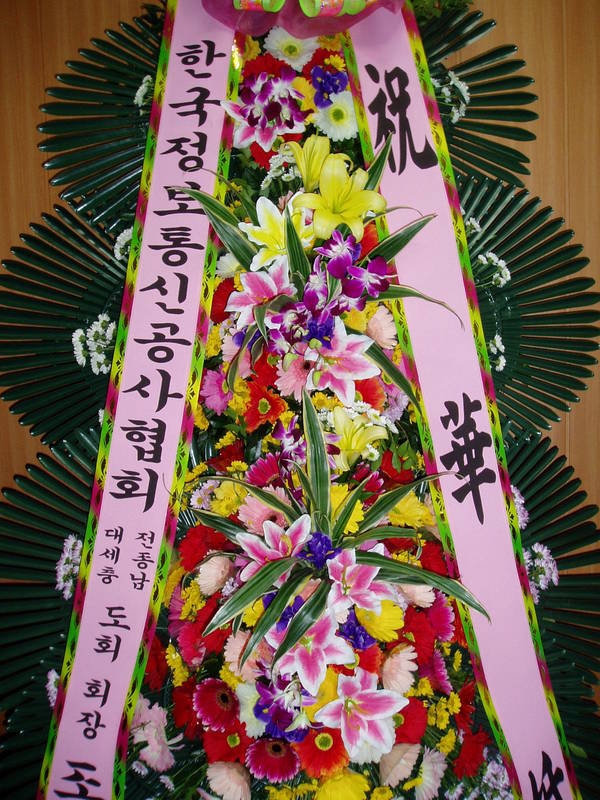 한국정보통신공사협회
대전
세종
충남
도회 회장
祝 華